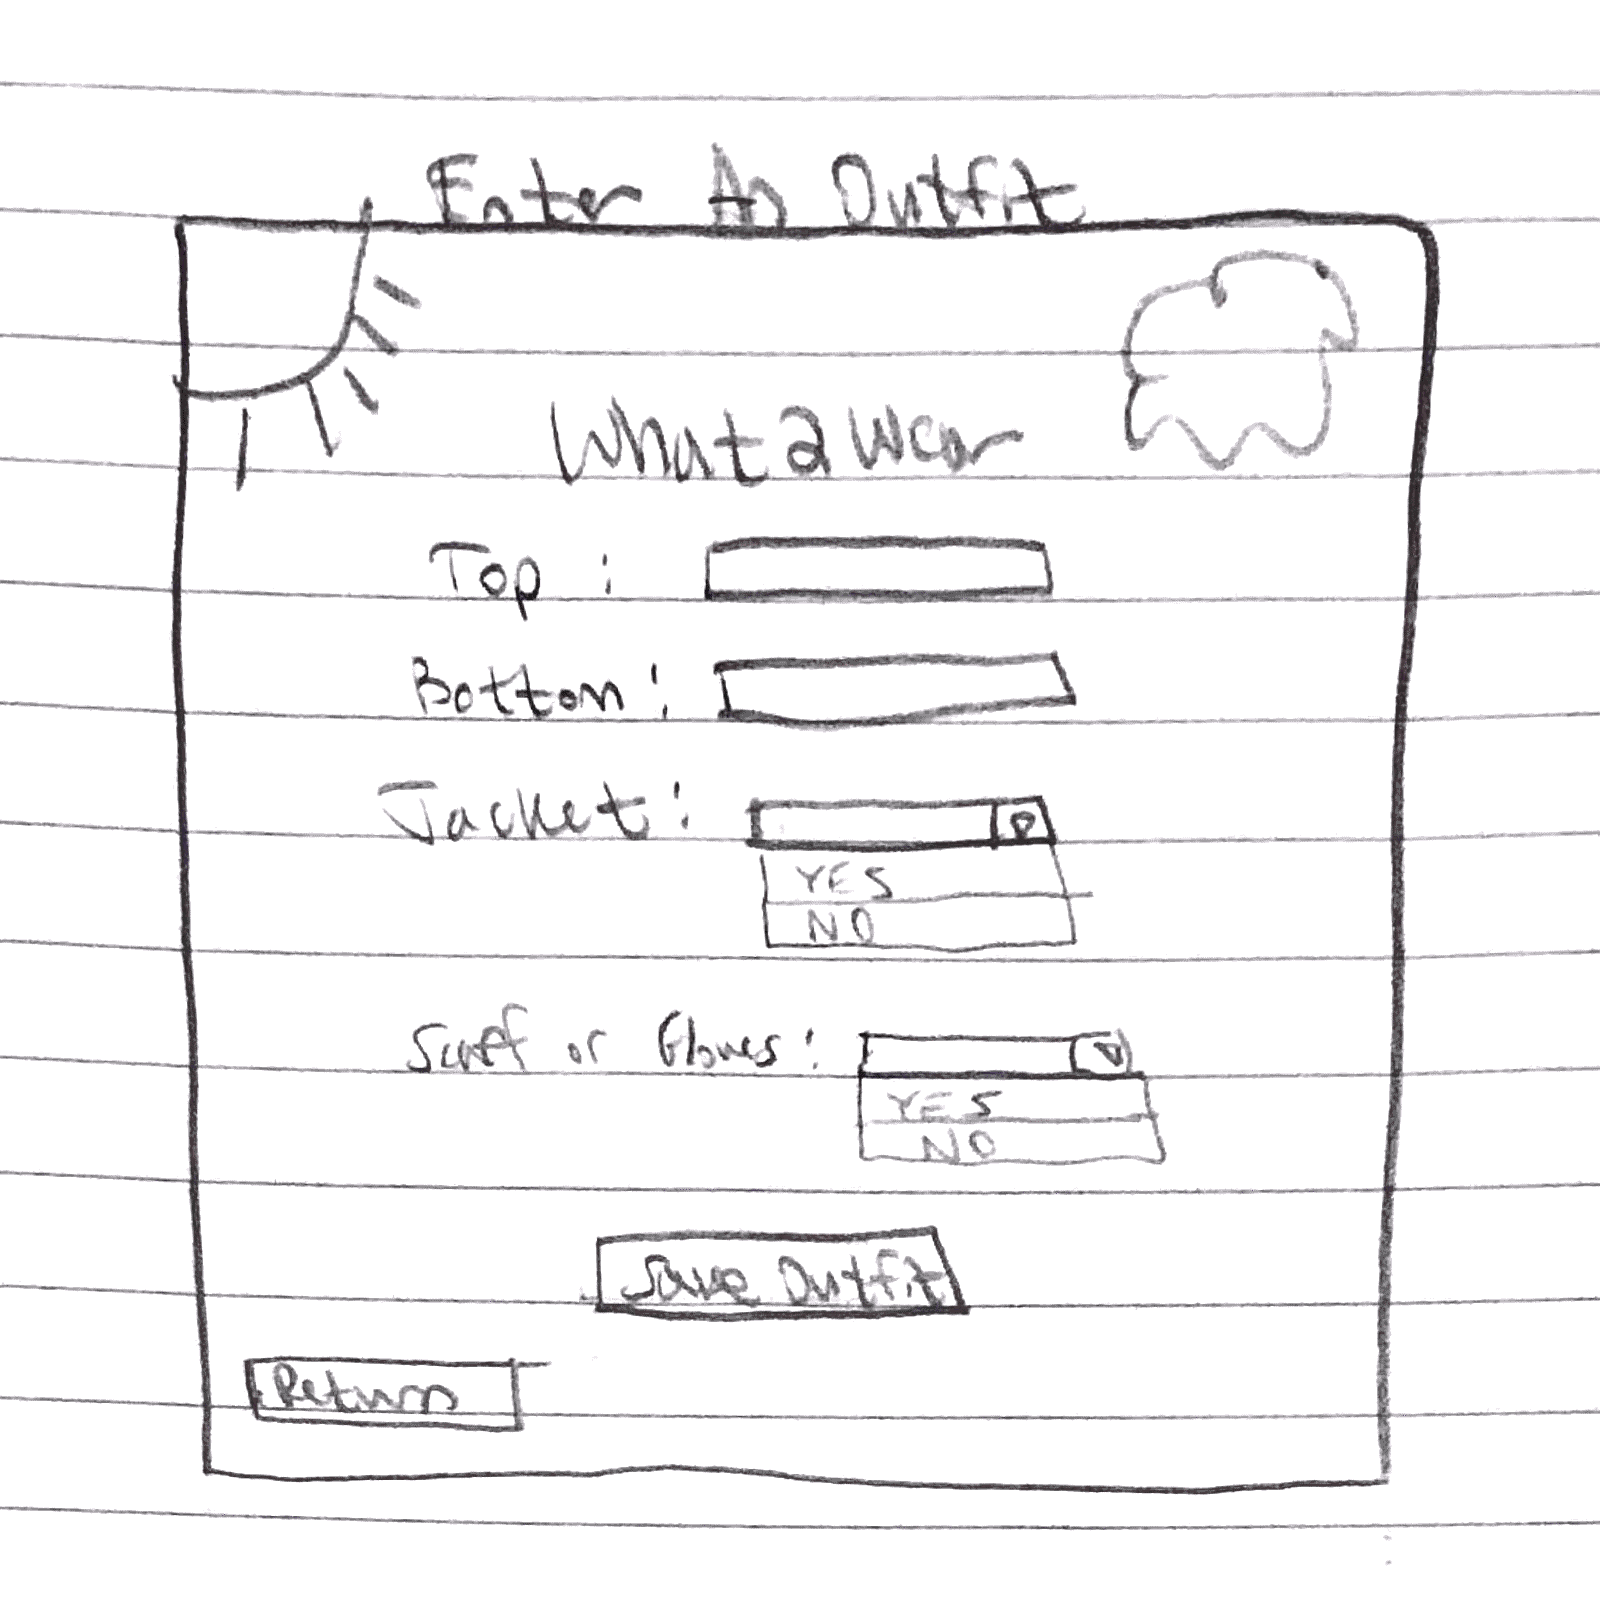 Enter An Outfit
What 2 Wear
Top :
Bottom :
Jacket :
YES
NO
Scarf or Gloves :
YES
NO
Save Outfit
Return